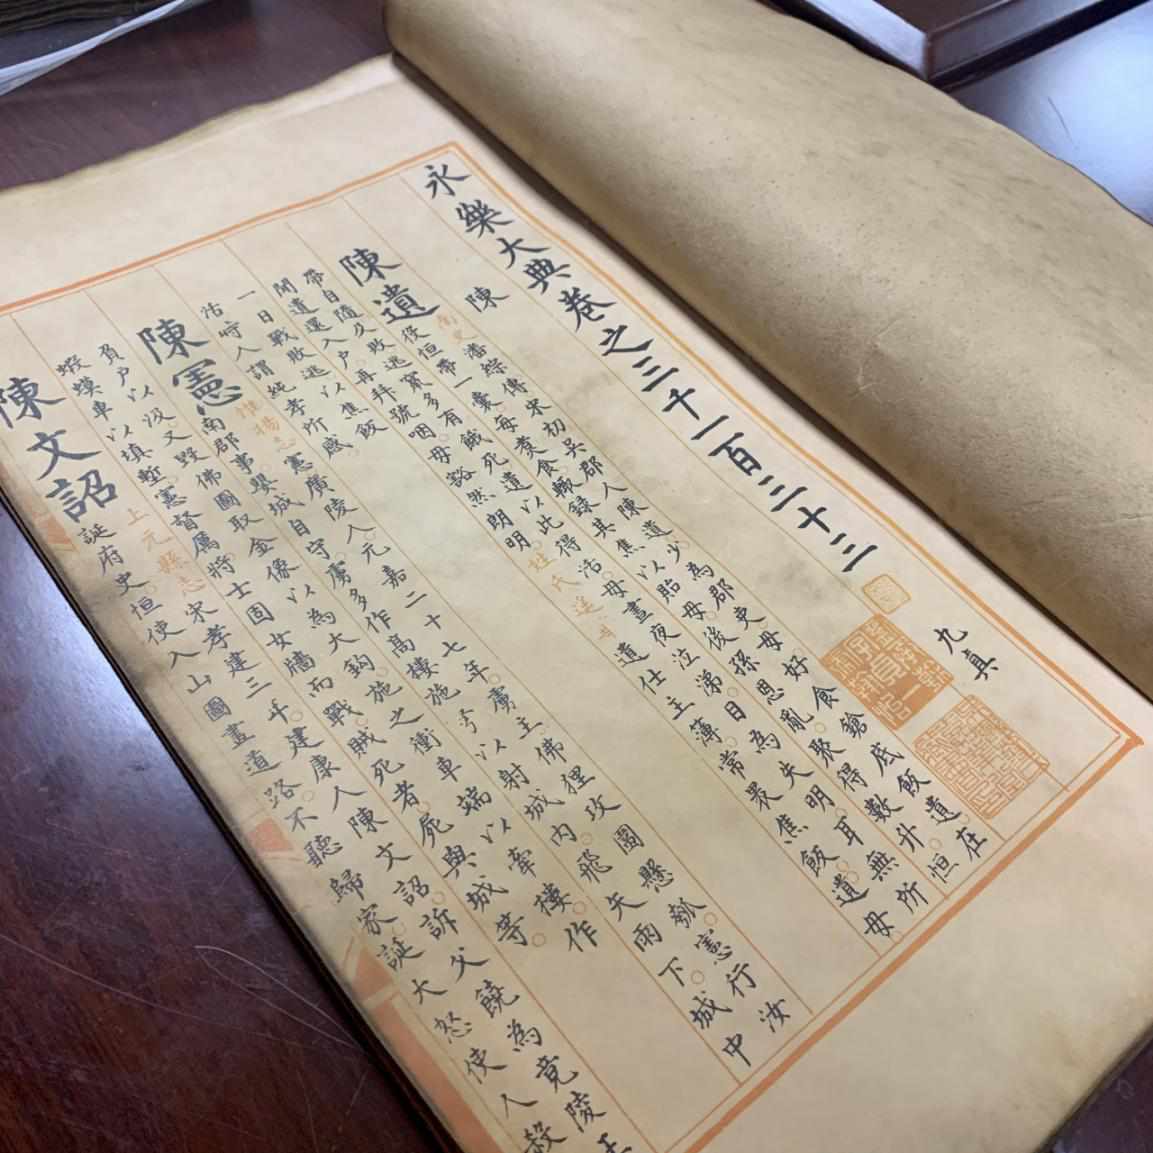 永樂大典卷之三千一百三十三 九真
陳
陳遺
南史潘綜傳宋初吳郡人陳遺少為郡吏母好食鎗底飯遺在
役恒帶一囊每煮食輒錄其焦以貽母後孫恩亂聚得數升恒
帶自隨及敗逃竄多有餓死遺以此得活母晝夜泣涕目為失明耳無所
聞遺還入户再拜號咽母豁然朗明 遺仕主薄常裹焦飯遺母
一日戰敗逃以集飯
活時人謂純孝所感
陳憲
維揚志憲廣陵人元嘉二十七年虜主佛狸攻圍懸瓠憲行汝
南郡事嬰城自守虜多作高樓施弩以射城内飛矢雨下城中
負户以汲又毀佛圖取金像以為大鈎施之衝車端以牽樓作
蝦蟆車以填塹憲督厲將士固女牆而戰賊死者屍與城等
陳文詔
上元縣志宋孝建三年建康人陳文詔訴父饒為竟陵王
誕府史恒使入山圖畫道路不聽歸家誕大怒使人殺